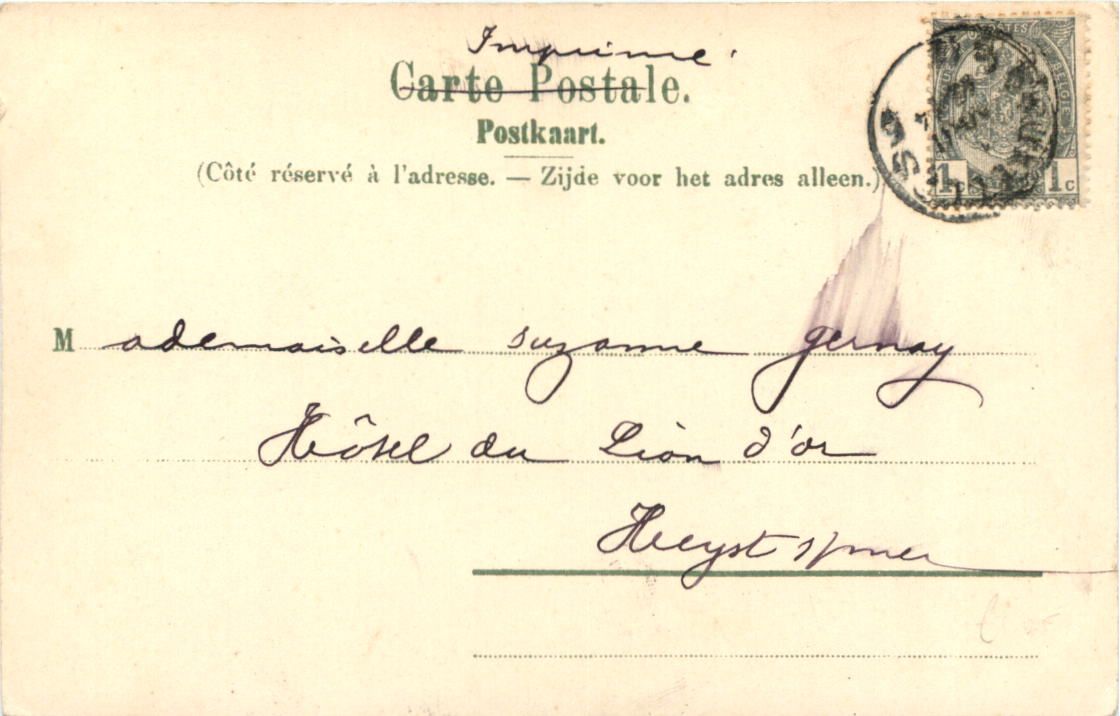 Imprimé
Carte Postale.
Postkaart.
(Côté réservé à l'adresse. — Zijde voor het adres alleen.)
1c 1c
Mademoiselle Suzanne Gernay
Hôtel du Lion d'or
Heyst s/mer